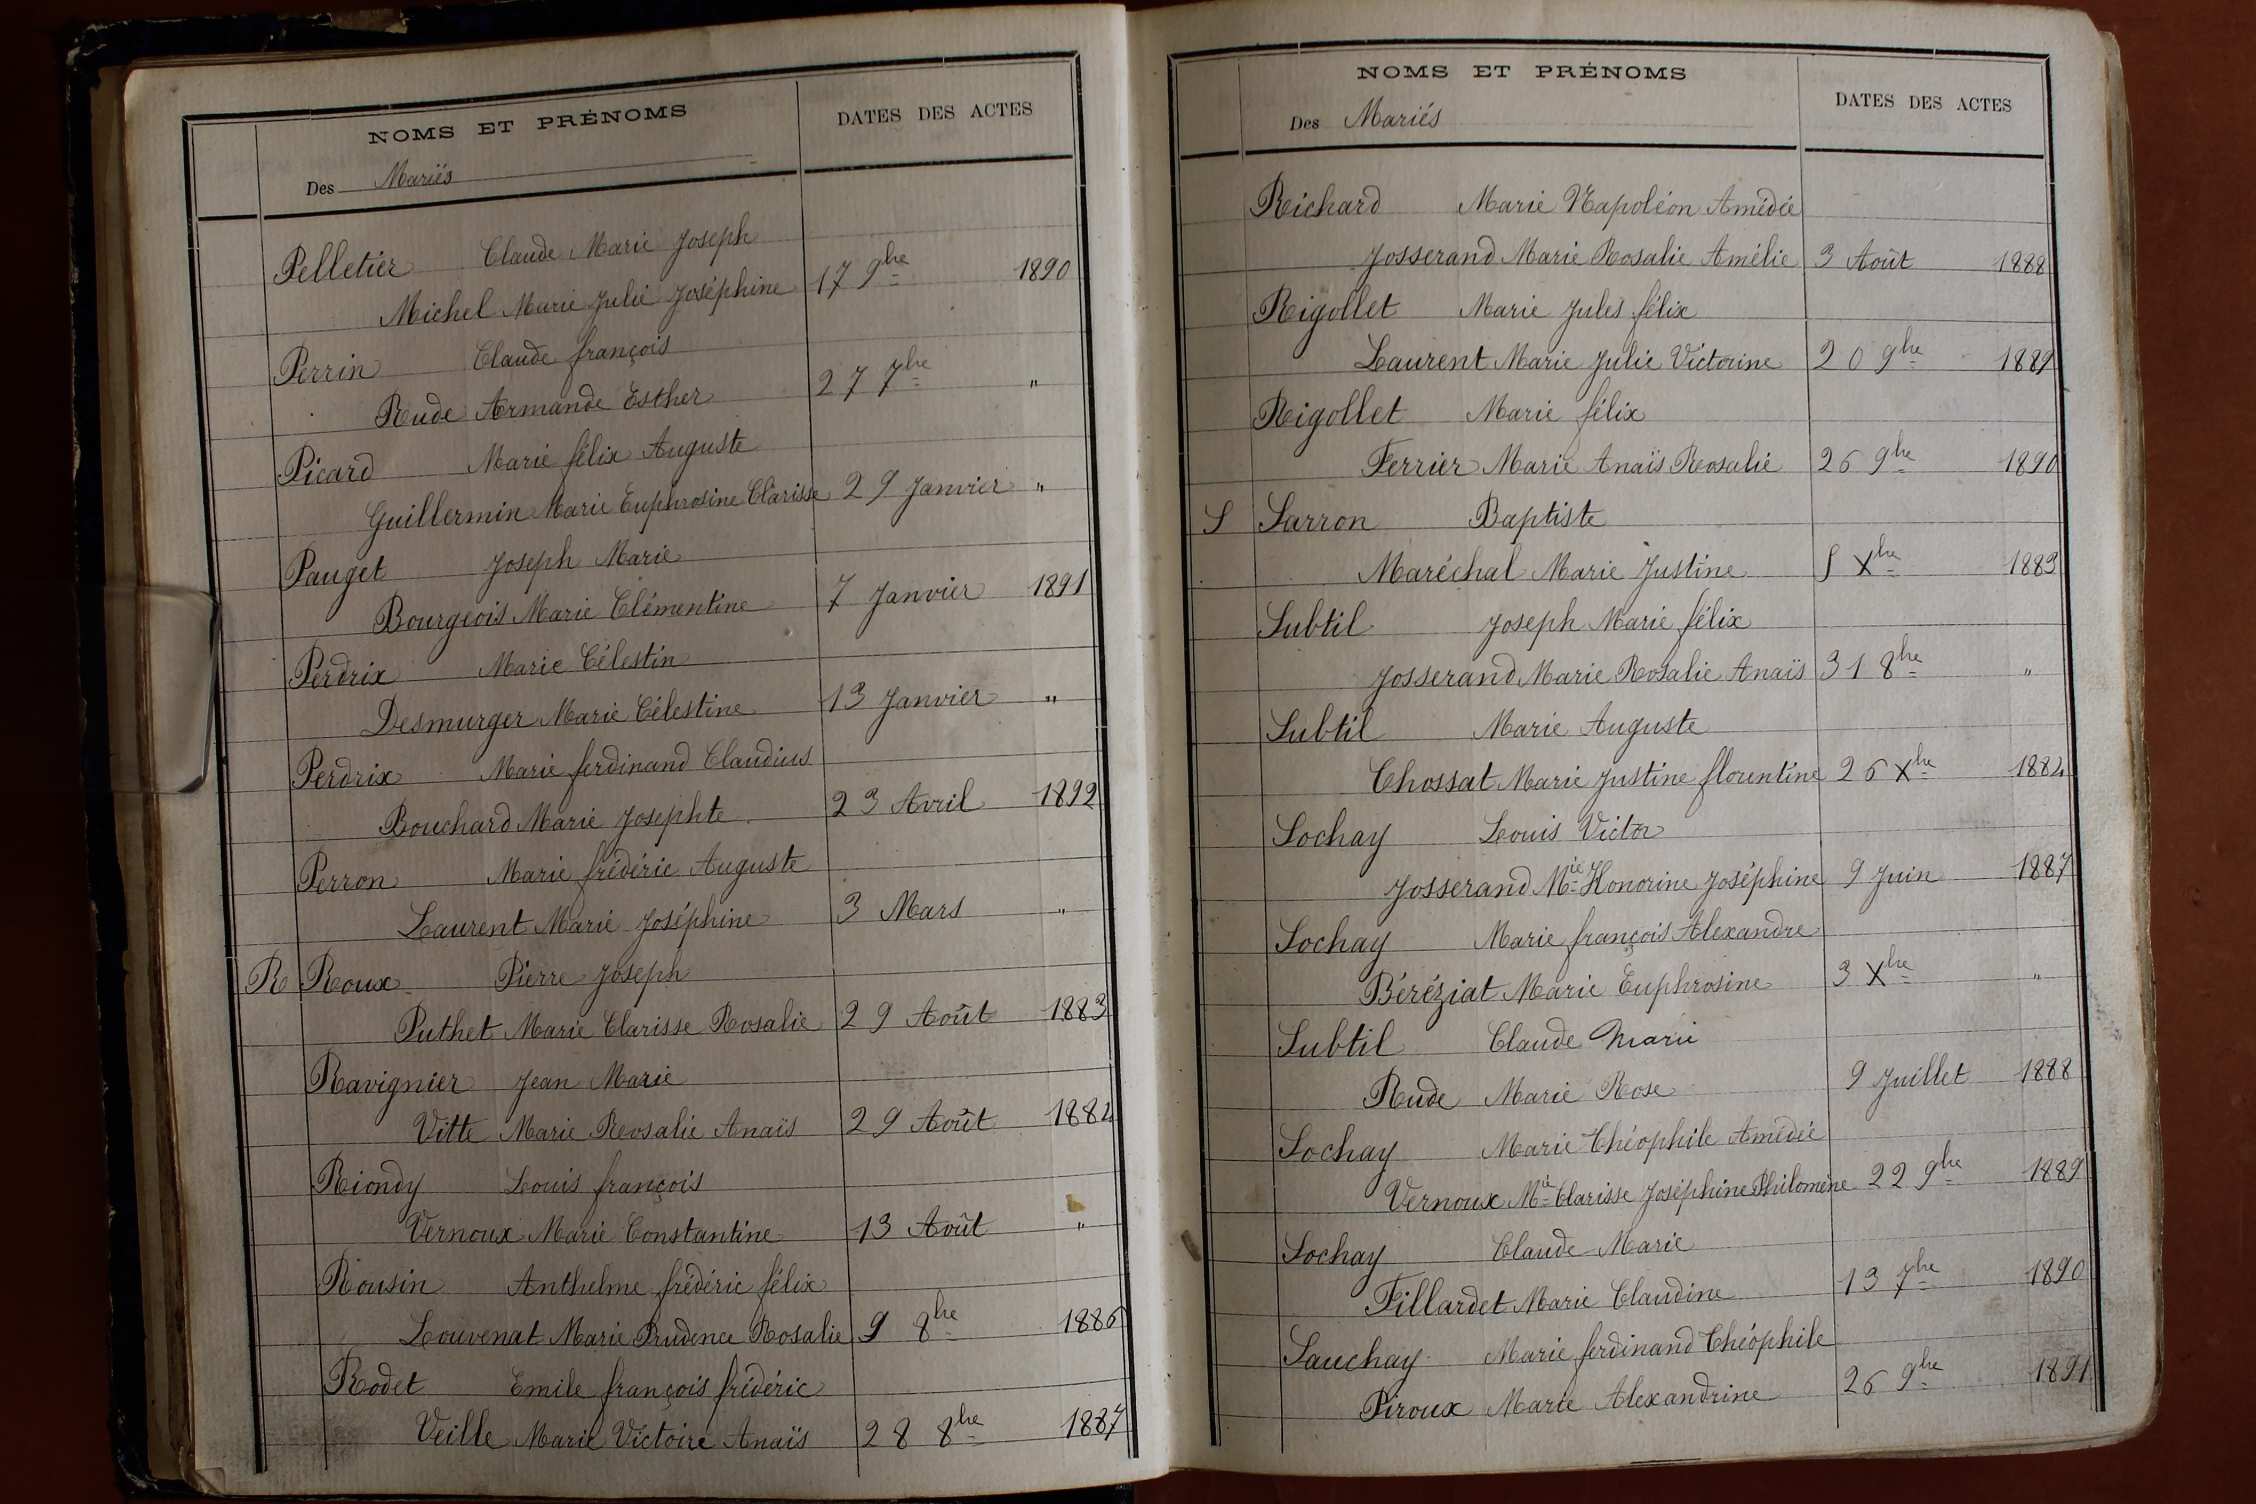 NOMS ET PRÉNOMS
DATES DES ACTES
Des Mariés
Pelletier Claude Marie Joseph
Michel Marie Julie Joséphine 17 9bre 1890
Perrin Claude françois
Rude Armande Esther 27 7bre "
Picard Marie félix Auguste
Guillermin Marie Euphrosine Clarisse 29 Janvier "
Pauget Joseph Marie
Bourgeois Marie Clémentine 7 Janvier 1891
Perdrix Marie Célestin
Desmurger Marie Célestine 13 Janvier "
Perdrix Marie ferdinand Claudius
Bouchard Marie Josephte 23 Avril 1892
Perron Marie frédéric Auguste
Laurent Marie Joséphine 3 Mars "
R Roux Pierre Joseph
Puthet Marie Clarisse Rosalie 29 Août 1883
Ravignier Jean Marie
Vitte Marie Rosalie Anaïs 29 Août 1884
Riondy Louis françois
Vernoux Marie Constantine 13 Août "
Rousin Anthelme frédéric félix
Louvenat Marie Prudence Rosalie 9 8bre 1886
Rodet Emile françois frédéric
Veille Marie Victoire Anaïs 28 8bre 1887
NOMS ET PRÉNOMS
DATES DES ACTES
Des Mariés
Richard Marie Napoléon Amédée
Josserand Marie Rosalie Amélie 3 Août 1888
Rigollet Marie Jules félix
Laurent Marie Julie Victorine 20 9bre 1889
Rigollet Marie félix
Ferrier Marie Anaïs Rosalie 26 9bre 1890
S Sarron Baptiste
Maréchal Marie Justine Xbre 1883
Subtil Joseph Marie félix
Josserand Marie Rosalie Anaïs 31 8bre "
Subtil Marie Auguste
Chossat Marie Justine flountine 26 Xbre 1884
Sochay Louis Victor
Josserand Mie Honorine Joséphine 9 Juin 1887
Sochay Marie françois Alexandre
Béréziat Marie Euphrosine 3 Xbre "
Subtil Claude Marie
Rude Marie Rose 9 Juillet 1888
Sochay Marie Théophile Amédée
Vernoux Mie Clarisse Joséphine Philomène 22 9bre 1889
Sochay Claude Marie
Fillardet Marie Claudine 13 7bre 1890
Sauchay Marie ferdinand Théophile
Piroux Marie Alexandrine 26 9bre 1891